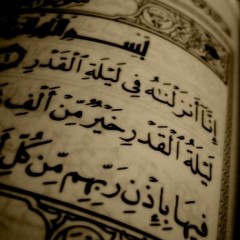 بِسْمِ ٱللَّهِ
إِنَّآ أَنزَلْنَٰهُ فِى لَيْلَةِ ٱلْقَدْرِ ١
لَيْلَةُ ٱلْقَدْرِ خَيْرٌ مِّنْ أَلْفِ
فِيهَا بِإِذْنِ رَبِّهِم مِّن كُلِّ